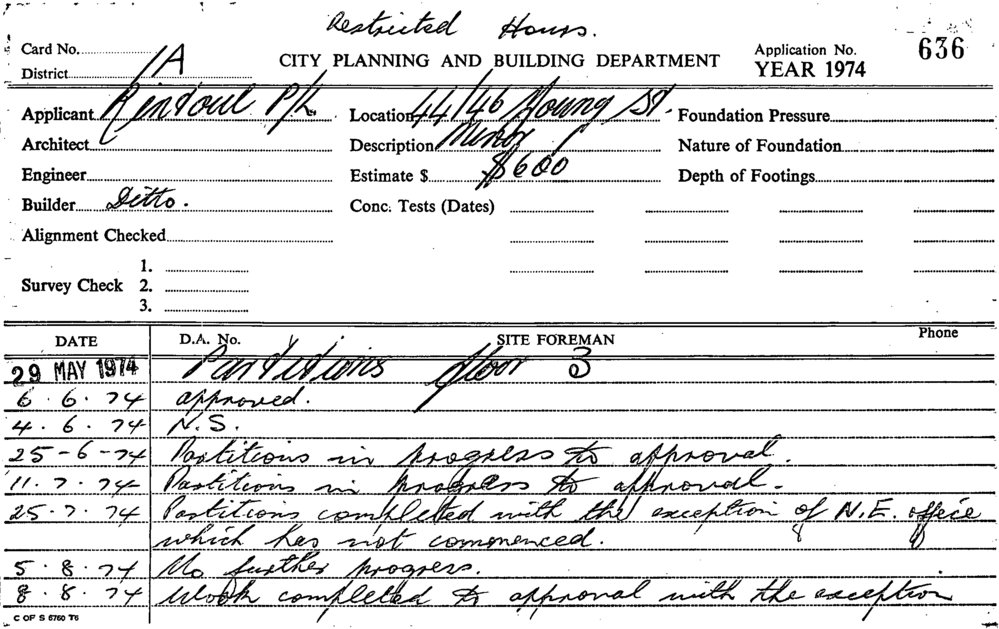 Restricted Hours.
Card No.
District 1A
CITY PLANNING AND BUILDING DEPARTMENT
Application No. 636
YEAR 1974
Applicant Rintoul P/L
Location 44/46 Young St.
Foundation Pressure
Architect
Description Minor
Nature of Foundation
Engineer
Estimate $ $600
Depth of Footings
Builder Ditto.
Conc. Tests (Dates)
Alignment Checked
Survey Check 1.
2.
3.
DATE D.A. No. SITE FOREMAN Phone
29 MAY 1974 Partitions floor 3
6.6.74 approved.
4.6.74 N.S.
25-6-74 Partitions in progress to approval.
11.7.74 Partitions in progress to approval.
25.7.74 Partitions completed with the exception of N.E. office
which has not commenced.
5.8.74 No further progress.
8.8.74 Work completed to approval with the exception
C OF S 5760 T6